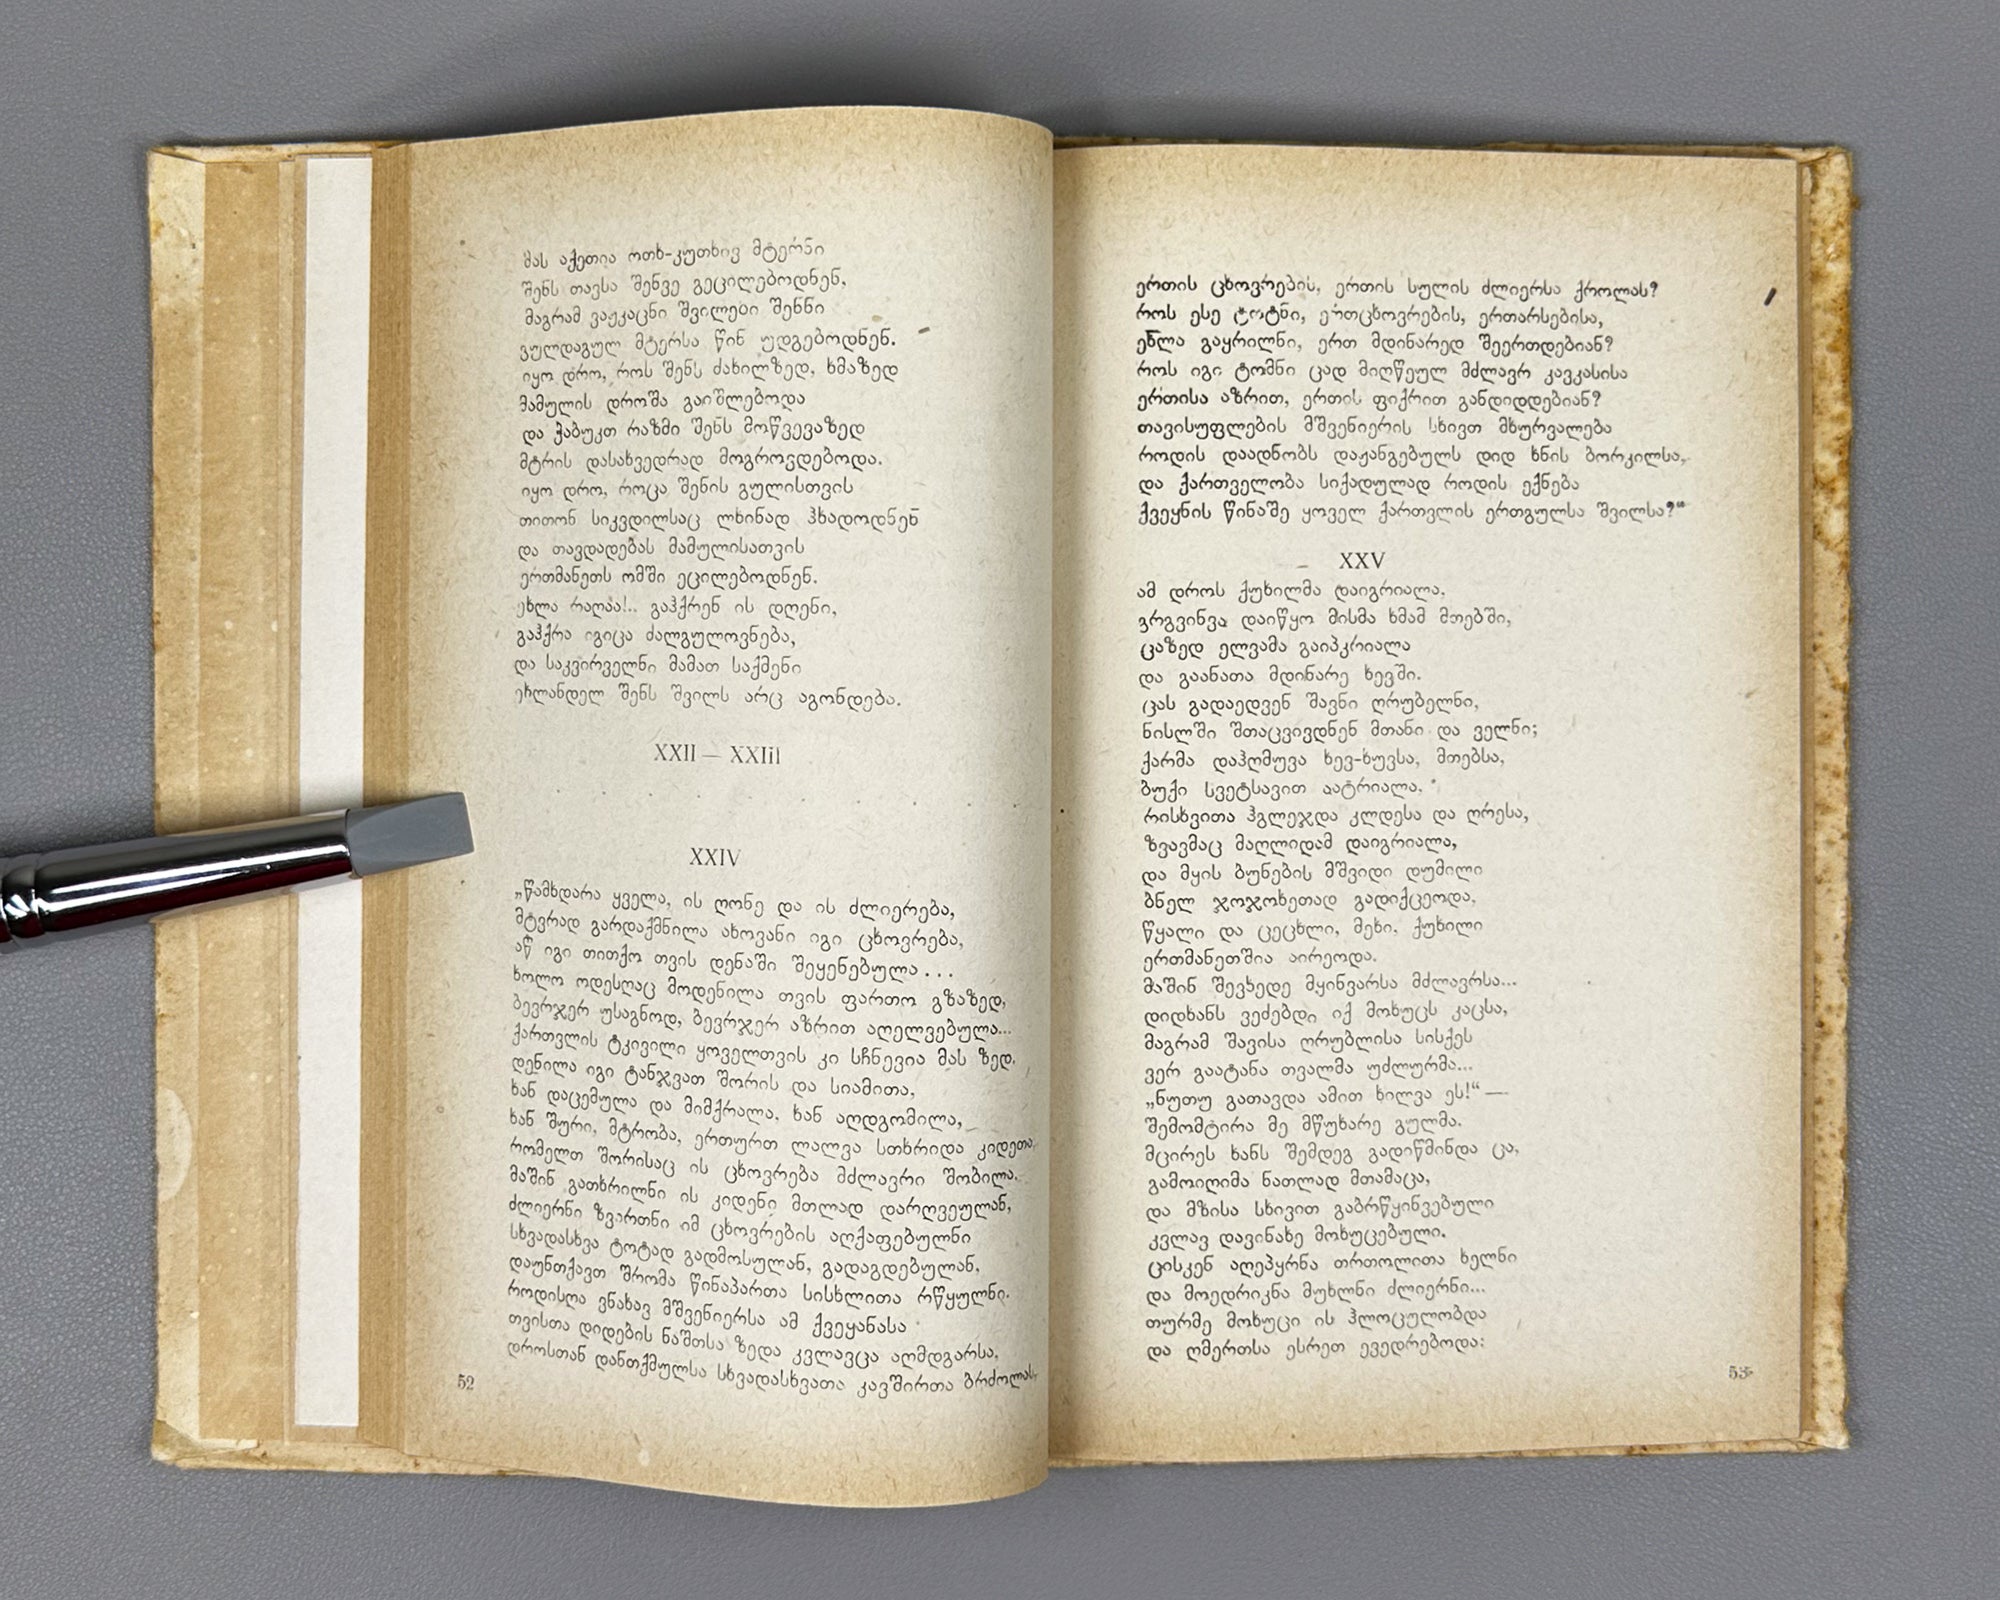 მას აქეთია ოთხ-კუთხივ მტერნი
შენს თავსა შენვე გეცილებოდნენ,
მაგრამ ვაჟკაცნი შვილები შენნი
გულდაგულ მტერსა წინ უდგებოდნენ.
იყო დრო, როს შენს ძახილზედ, ხმაზედ
მამულის დროშა გაიშლებოდა
და ჭაბუკთ რაზმი შენს მოწვევაზედ
მტრის დასახვედრად მოგროვდებოდა.
იყო დრო, როცა შენის გულისთვის
თითონ სიკვდილსაც ლხინად ჰხადოდნენ
და თავდადებას მამულისათვის
ერთმანეთს ომში ეცილებოდნენ.
ეხლა რაღაა!.. გაჰქრენ ის დღენი,
გაჰქრა იგიცა ძალგულოვნება,
და საკვირველნი მამათ საქმენი
ეხლანდელ შენს შვილს არც აგონდება.
XXII — XXIII
XXIV
„წამხდარა ყველა, ის ღონე და ის ძლიერება,
მტვრად გარდაქმნილა ახოვანი იგი ცხოვრება,
აწ იგი თითქო თვის დენაში შეყენებულა...
ხოლო ოდესღაც მოდენილა თვის ფართო გზაზედ,
ბევრჯერ უსაგნოდ, ბევრჯერ აზრით აღელვებულა...
ქართვლის ტკივილი ყოველთვის კი სჩნევია მას ზედ,
დენილა იგი ტანჯვათ შორის და სიამითა,
ხან დაცემულა და მიმქრალა, ხან აღდგომილა,
ხან შური, მტრობა, ერთურთ ღალვა სთხრიდა კიდეთა,
რომელთ შორისაც ის ცხოვრება მძლავრი შობილა.
მაშინ გათხრილნი ის კიდენი მთლად დარღვეულან,
ძლიერნი ზვირთნი იმ ცხოვრების აღქაფებულნი
სხვადასხვა ტოტად გადმოსულან, გადაგდებულან,
დაუნთქავთ შრომა წინაპართა სისხლითა რწყულნი.
როდისღა ვნახავ მშვენიერსა ამ ქვეყანასა
თვისთა დიდების ნაშთსა ზედა კვლავცა აღმდგარსა,
დროსთან დანთქმულსა სხვადასხვათა კავშირთა ბრძოლას,
52
ერთის ცხოვრების, ერთის სულის ძლიერსა ქროლას?
როს ესე ტოტნი, ერთცხოვრების, ერთარსებისა,
ეხლა გაყრილნი, ერთ მდინარედ შეერთდებიან?
როს იგი ტომნი ცად მიღწეულ მძლავრ კავკასისა
ერთისა აზრით, ერთის ფიქრით განდიდდებიან?
თავისუფლების მშვენიერის სხივთ მხურვალება
როდის დაადნობს დაჟანგებულს დიდ ხნის ბორკილსა,
და ქართველობა სიქადულად როდის ექნება
ქვეყნის წინაშე ყოველ ქართვლის ერთგულსა შვილსა?“
XXV
ამ დროს ქუხილმა დაიგრიალა,
გრგვინვა დაიწყო მისმა ხმამ მთებში,
ცაზედ ელვამა გაიპკრიალა
და გაანათა მდინარე ხევში.
ცას გადაედვენ შავნი ღრუბელნი,
ნისლში შთაცვივდნენ მთანი და ველნი;
ქარმა დაჰღმუვა ხევ-ხუვსა, მთებსა,
ბუქი სვეტსავით აატრიალა,
რისხვითა ჰგლეჯდა კლდესა და ღრესა,
ზვავმაც მაღლიდამ დაიგრიალა,
და მყის ბუნების მშვიდი დუმილი
ბნელ ჯოჯოხეთად გადიქცეოდა,
წყალი და ცეცხლი, მეხი, ქუხილი
ერთმანეთშია აირეოდა.
მაშინ შევხედე მყინვარსა მძლავრსა...
დიდხანს ვეძებდი იქ მოხუცს კაცსა,
მაგრამ შავისა ღრუბლისა სისქეს
ვერ გაატანა თვალმა უძლურმა...
„ნუთუ გათავდა ამით ხილვა ეს!“ —
შემომტირა მე მწუხარე გულმა.
მცირეს ხანს შემდეგ გადიწმინდა ცა,
გამოიღიმა ნათლად მთამაცა,
და მზისა სხივით გაბრწყინვებული
კვლავ დავინახე მოხუცებული.
ცისკენ აღეპყრნა თრთოლითა ხელნი
და მოედრიკნა მუხლნი ძლიერნი...
თურმე მოხუცი ის ჰლოცულობდა
და ღმერთსა ესრეთ ევედრებოდა:
53